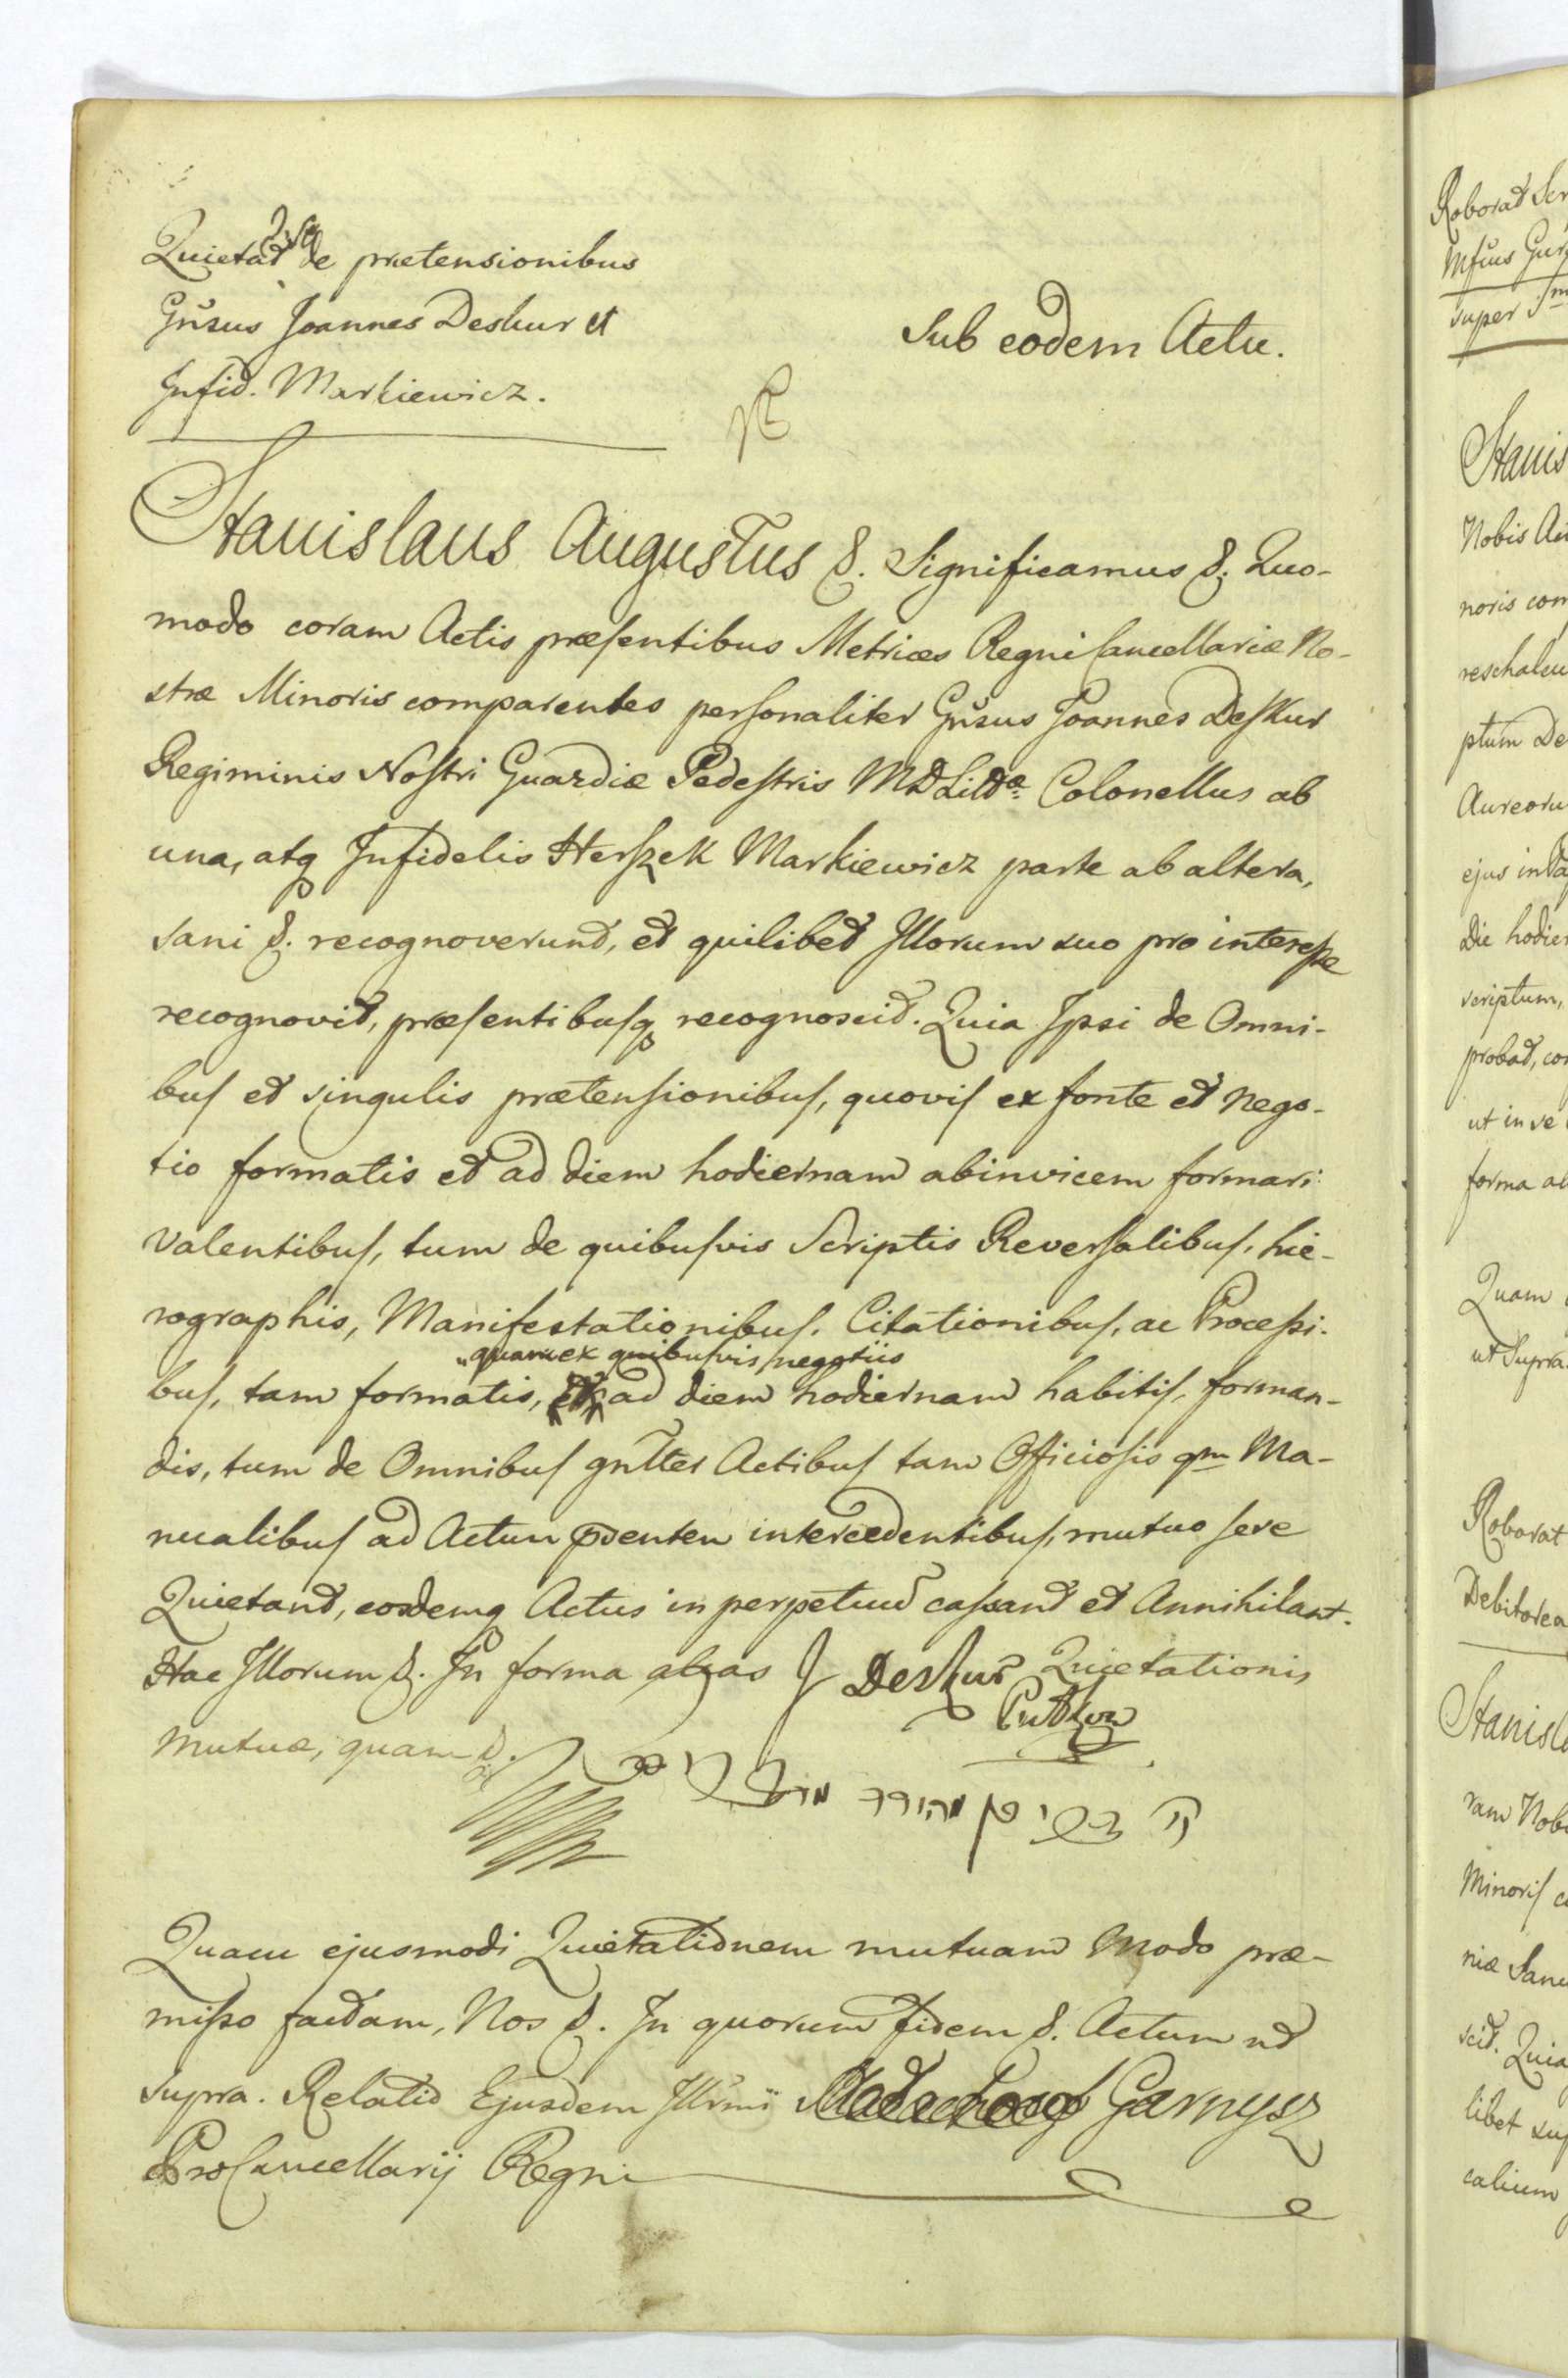 Quietat de prætensionibus
Gñsus Joannes Deskur et
Infid. Markiewicz.
Sub eodem Actu.
Stanislaus Augustus &. Significamus &. Quo-
modo coram Actis præsentibus Metrices Regni Cancellariæ No-
stræ Minoris comparentes personaliter Gñsus Joannes Deskur
Regiminis Nostri Guardiæ Pedestris MDLitdæ Colonellus ab
una, atq Infidelis Herszek Markiewicz parte ab altera,
sani &. recognoverunt, et quilibet Illorum suo pro interesse
recognovit, præsentibusq recognoscit. Quia Ipsi de Omni-
bus et singulis prætensionibus, quovis ex fonte et nego-
tio formatis et ad diem hodiernam abinvicem formari
valentibus, tum de quibusvis Scriptis Reversalibus, hie-
rographis, Manifestationibus, Citationibus, ac Processi-
quam ex quibusvis negotiis
bus, tam formatis, ad diem hodiernam habitis, forman-
dis, tum de Omnibus gnlter Actibus tam Officiosis qm Ma-
nualibus ad Actum pñdentem intercedentibus, mutuo sese
Quietant, eosdemq Actus in perpetuum cassant et Annihilant.
Hac Illorum &. In forma J Deskur Quietationis
Mutuæ, quam &.
Quam ejusmodi Quietationem mutuam Modo præ-
misso factam, Nos &. In quorum fidem &. Actum ut
supra. Relatio Ejusdem Illrmi Garnysz
ProCancellarij Regni
Roborat
super
Stanis
Nobis
noris com
ptum De
ejus
Die hodier
scriptum,
probat, con
ut in
forma
Quam
ut Supra
Roborat
Stanisl
ram Nob
Minoris
scit. Quia
libet